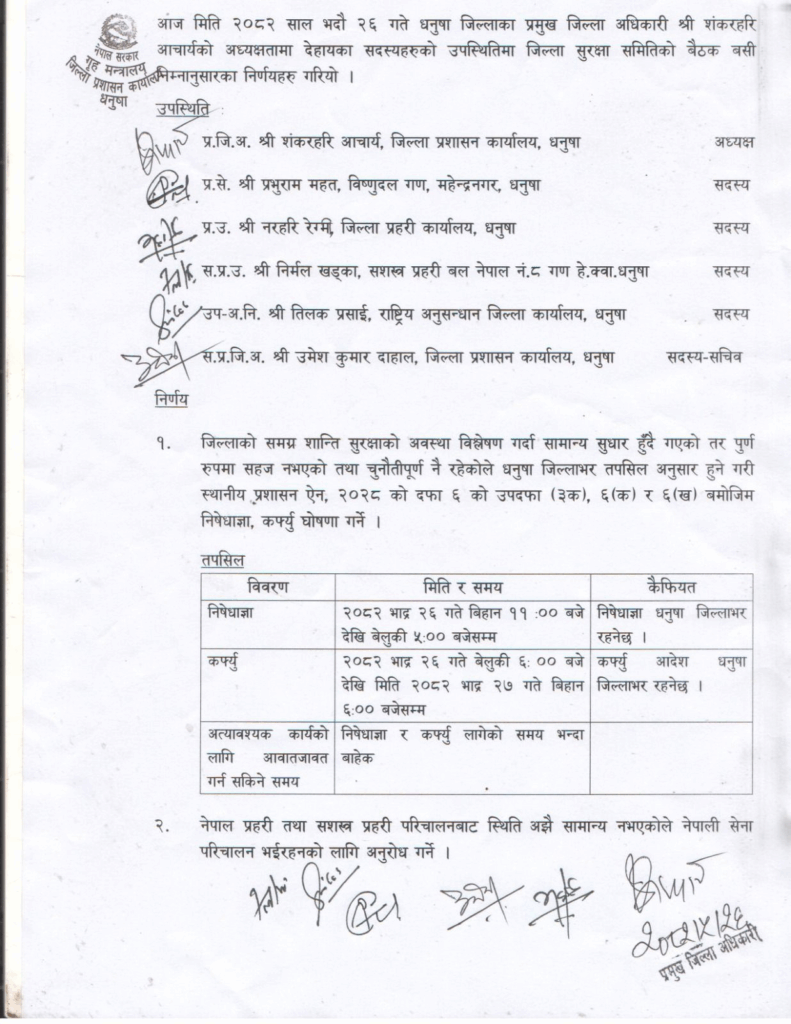 आज मिति २०८२ साल भदौ २६ गते धनुषा जिल्लाका प्रमुख जिल्ला अधिकारी श्री शंकरहरि
आचार्यको अध्यक्षतामा देहायका सदस्यहरुको उपस्थितिमा जिल्ला सुरक्षा समितिको बैठक बसी
निम्नानुसारका निर्णयहरु गरियो ।
नेपाल सरकार
गृह मन्त्रालय
जिल्ला प्रशासन कार्यालय
धनुषा
उपस्थिति
प्र.जि.अ. श्री शंकरहरि आचार्य, जिल्ला प्रशासन कार्यालय, धनुषा अध्यक्ष
प्र.से. श्री प्रभुराम महत, विष्णुदल गण, महेन्द्रनगर, धनुषा सदस्य
प्र.उ. श्री नरहरि रेग्मी, जिल्ला प्रहरी कार्यालय, धनुषा सदस्य
स.प्र.उ. श्री निर्मल खड्का, सशस्त्र प्रहरी बल नेपाल नं.८ गण हे.क्वा.धनुषा सदस्य
उप-अ.नि. श्री तिलक प्रसाई, राष्ट्रिय अनुसन्धान जिल्ला कार्यालय, धनुषा सदस्य
स.प्र.जि.अ. श्री उमेश कुमार दाहाल, जिल्ला प्रशासन कार्यालय, धनुषा सदस्य-सचिव
निर्णय
१. जिल्लाको समग्र शान्ति सुरक्षाको अवस्था विश्लेषण गर्दा सामान्य सुधार हुँदै गएको तर पुर्ण
रुपमा सहज नभएको तथा चुनौतीपूर्ण नै रहेकोले धनुषा जिल्लाभर तपसिल अनुसार हुने गरी
स्थानीय प्रशासन ऐन, २०२८ को दफा ६ को उपदफा (३क), ६(क) र ६(ख) बमोजिम
निषेधाज्ञा, कर्फ्यु घोषणा गर्ने ।
तपसिल
विवरण मिति र समय कैफियत
निषेधाज्ञा २०८२ भाद्र २६ गते बिहान ११ :०० बजे निषेधाज्ञा धनुषा जिल्लाभर
देखि बेलुकी ५:०० बजेसम्म रहनेछ ।
कर्फ्यु २०८२ भाद्र २६ गते बेलुकी ६: ०० बजे कर्फ्यु आदेश धनुषा
देखि मिति २०८२ भाद्र २७ गते बिहान जिल्लाभर रहनेछ ।
६:०० बजेसम्म
अत्यावश्यक कार्यको निषेधाज्ञा र कर्फ्यु लागेको समय भन्दा
लागि आवातजावत बाहेक
गर्न सकिने समय
२. नेपाल प्रहरी तथा सशस्त्र प्रहरी परिचालनबाट स्थिति अझै सामान्य नभएकोले नेपाली सेना
परिचालन भईरहनको लागि अनुरोध गर्ने ।
२०८२।५।२६
प्रमुख जिल्ला अधिकारी